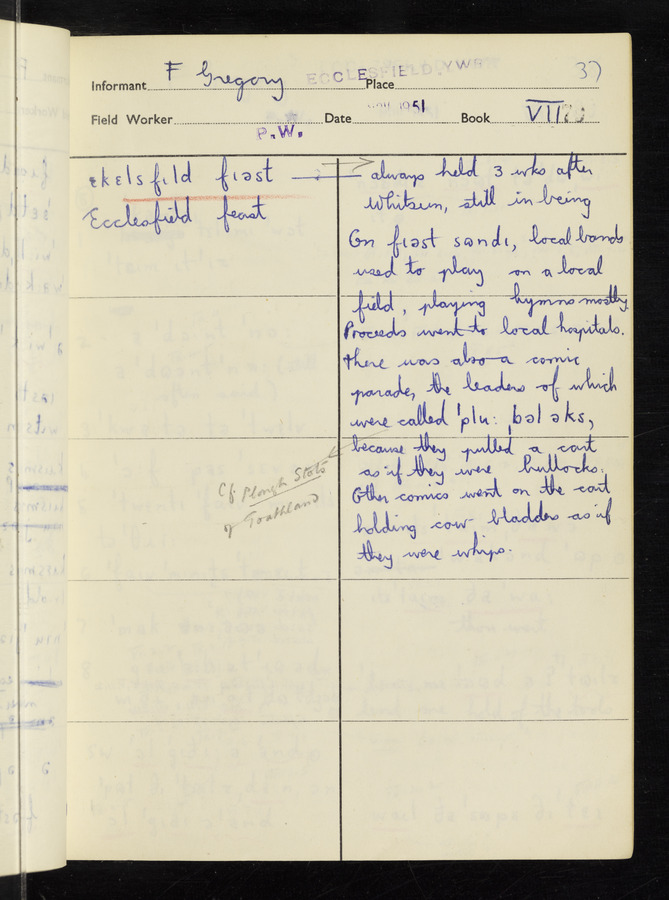 37
Informant F Gregory ECCLESFIELD. YWR Place
Field Worker P.W. Date 1951 Book VII
ɛkɛlsfɪld fɪəst
Ecclesfield feast
always held 3 wks after
Whitsun, still in being
On fɪəst sʊndɪ, local bands
used to play on a local
field, playing hymns mostly.
Proceeds went to local hospitals.
There was also a comic
parade, the leaders of which
were called 'plu: 'bʊləks,
because they pulled a cart
as if they were bullocks.
Other comics went on the cart
holding cow bladders as if
they were whips.
Cf. Plough Stots
of Goathland